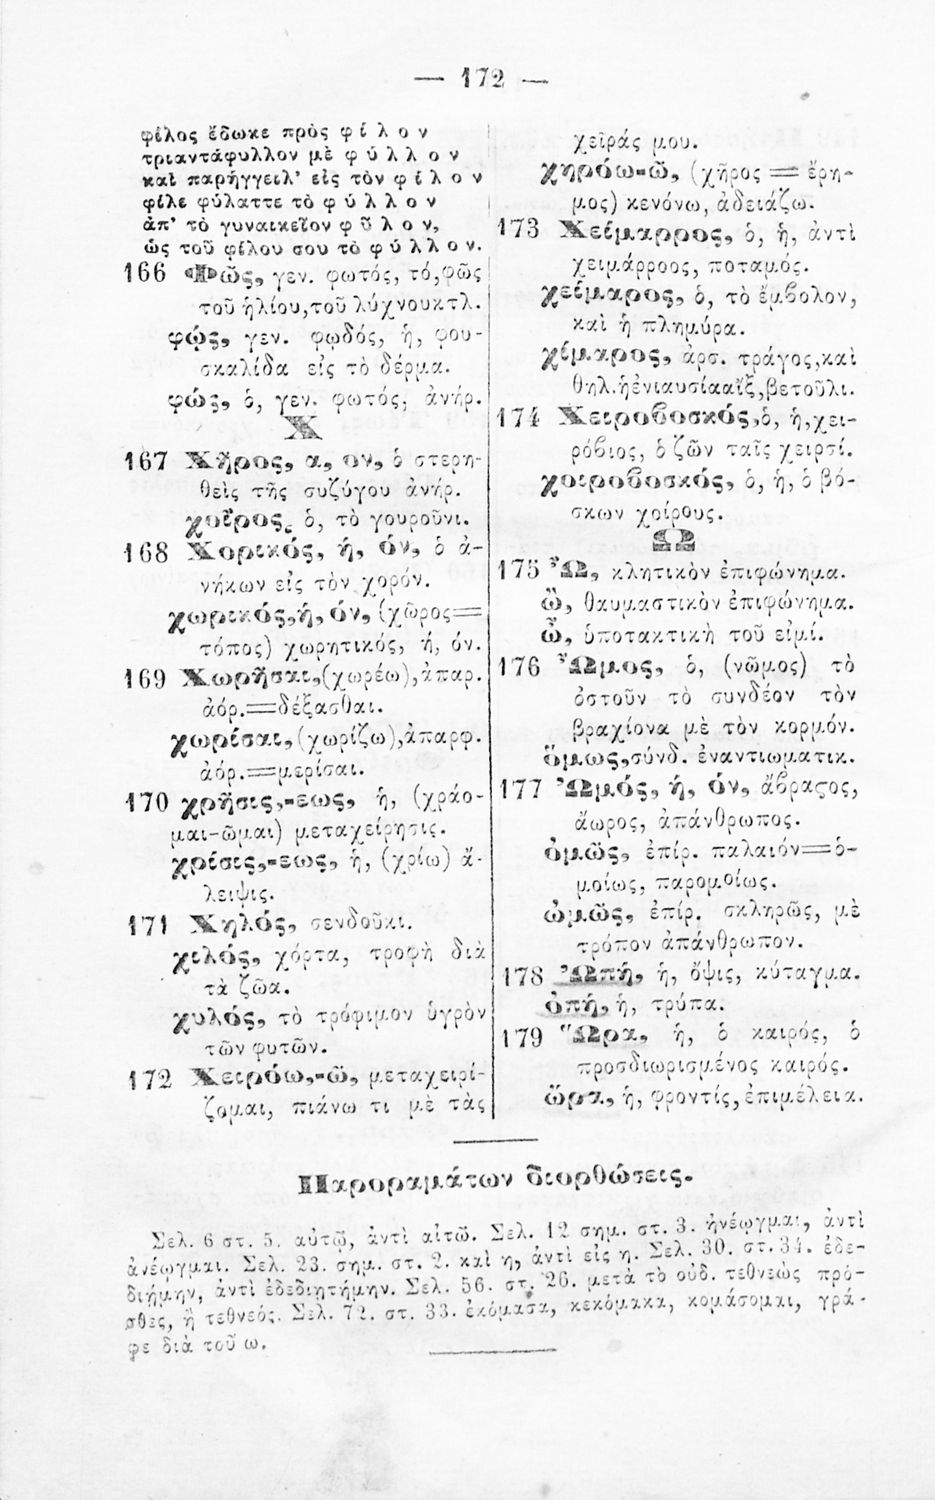 — 172 —
φίλος ἔδωκε πρὸς φίλον
τριαντάφυλλον μὲ φύλλον
καὶ παρήγγειλ' εἰς τὸν φίλον
φίλε φύλαττε τὸ φύλλον
ἀπ' τὸ γυναικεῖον φῦλον,
ὡς τοῦ φίλου σου τὸ φύλλον.
166 Φῶς, γεν. φωτός, τό, φῶς
τοῦ ἡλίου, τοῦ λύχνου κτλ.
φῴς, γεν. φῳδός, ἡ, φου-
σκαλίδα εἰς τὸ δέρμα.
φώς, ὁ, γεν. φωτός, ἀνήρ.
Χ
167 Χῆρος, α, ον, ὁ στερη-
θεὶς τῆς συζύγου ἀνήρ.
χοῖρος, ὁ, τὸ γουροῦνι.
168 Χορικός, ή, όν, ὁ ἀ-
νήκων εἰς τὸν χορόν.
χωρικός, ή, όν, (χῶρος=
τόπος) χωρητικός, ή, όν.
169 Χωρῆσαι, (χωρέω), ἀπαρ.
ἀόρ.=δέξασθαι.
χωρίσαι, (χωρίζω), ἀπαρφ.
ἀόρ.=μερίσαι.
170 χρῆσις,-εως, ἡ, (χράο-
μαι-ῶμαι) μεταχείρησις.
χρίσις,-εως, ἡ, (χρίω) ἄ-
λειψις.
171 Χηλός, σενδοῦκι.
χιλός, χόρτα, τροφὴ διὰ
τὰ ζῶα.
χυλός, τὸ τρόφιμον ὑγρὸν
τῶν φυτῶν.
172 Χειρόω,-ῶ, μεταχειρί-
ζομαι, πιάνω τι μὲ τὰς
χεῖράς μου.
χηρόω-ῶ, (χῆρος = ἔρη-
μος) κενόνω, ἀδειάζω.
173 Χείμαρρος, ὁ, ἡ, ἀντὶ
χειμάρροος, ποταμός.
χείμαρος, ὁ, τὸ ἔμβολον,
καὶ ἡ πλημύρα.
χίμαρος, ἀρσ. τράγος, καὶ
θηλ. ἡ ἐνιαυσία αἴξ, βετοῦλι.
174 Χειροβοσκός, ὁ, ἡ, χει-
ρόβιος, ὁ ζῶν ταῖς χειρσί.
χοιροβοσκός, ὁ, ἡ, ὁ βό-
σκων χοίρους.
Ω
175 Ὦ, κλητικὸν ἐπιφώνημα.
ὤ, θαυμαστικὸν ἐπιφώνημα.
ὦ, ὑποτακτικὴ τοῦ εἰμί.
176 Ὦμος, ὁ, (νῶμος) τὸ
ὀστοῦν τὸ συνδέον τὸν
βραχίονα μὲ τὸν κορμόν.
ὅμως, σύνδ. ἐναντιωματικ.
177 Ὠμός, ή, όν, ἄβραστος,
ἄωρος, ἀπάνθρωπος.
ὁμῶς, ἐπίρ. παλαιόν=ὁ-
μοίως, παρομοίως.
ὠμῶς, ἐπίρ. σκληρῶς, μὲ
τρόπον ἀπάνθρωπον.
178 Ὠπή, ἡ, ὄψις, κύταγμα.
ὀπή, ἡ, τρύπα.
179 Ὥρα, ἡ, ὁ καιρός, ὁ
προσδιωρισμένος καιρός.
ὤρα, ἡ, φροντίς, ἐπιμέλεια.
Παροραμάτων διορθώσεις.
Σελ. 6 στ. 5. αὐτῷ, ἀντὶ αἰτῶ. Σελ. 12 σημ. στ. 3. ἠνέῳγμαι, ἀντὶ
ἀνέῳγμαι. Σελ. 23. σημ. στ. 2. καὶ η, ἀντὶ εἰς η. Σελ. 30. στ. 34. ἐδε-
διῄμην, ἀντὶ ἐδεδιητήμην. Σελ. 56. στ. 26. μετὰ τὸ οὐδ. τεθνεὼς πρό-
σθες, ἢ τεθνεός. Σελ. 72. στ. 33. ἐκόμασα, κεκόμακα, κομάσομαι, γρά-
φε διὰ τοῦ ω.